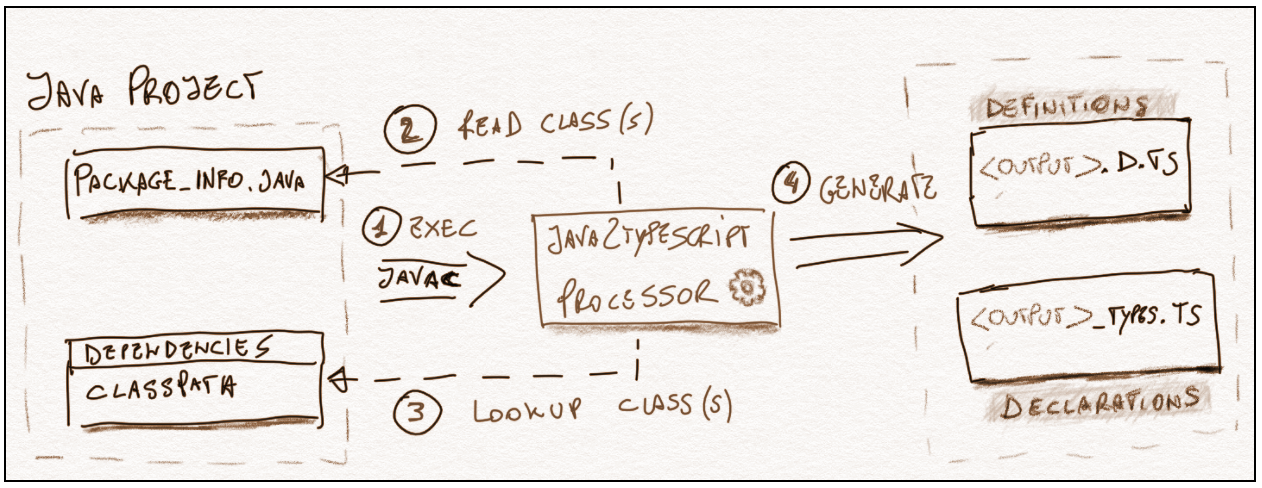 JAVA PROJECT
PACKAGE_INFO.JAVA
DEPENDENCIES
CLASSPATH
2 READ CLASS(S)
1 EXEC
JAVAC
JAVA2TYPESCRIPT
PROCESSOR
3 LOOKUP CLASS(S)
4 GENERATE
DEFINITIONS
<OUTPUT>.D.TS
<OUTPUT>_TYPES.TS
DECLARATIONS